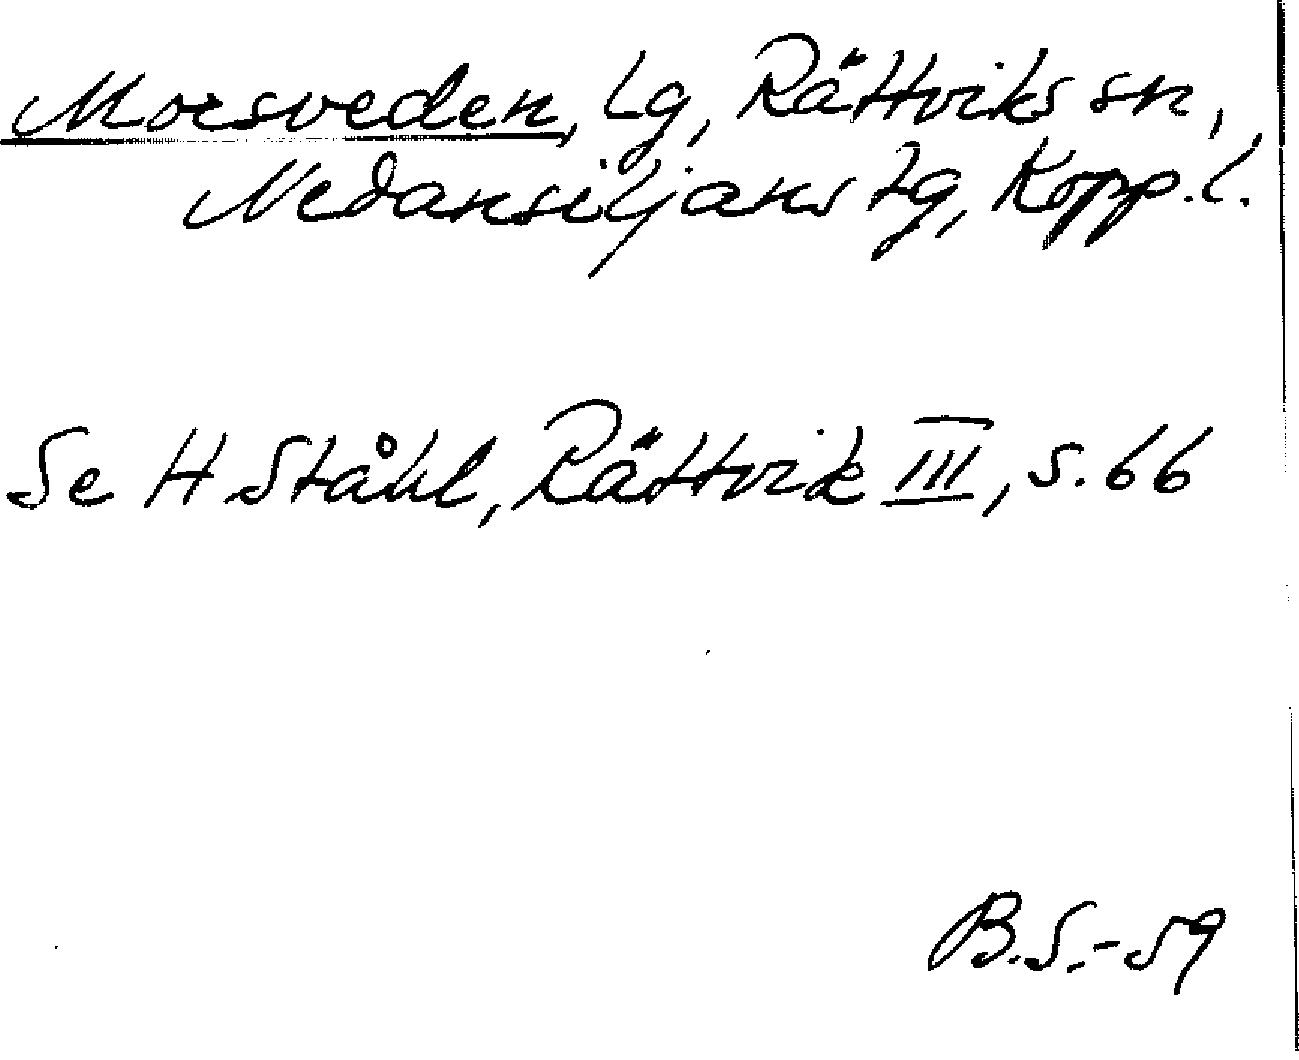 Morsveden, Lg, Rättviks sn,
Nedansiljans tg, Kopp.l.
Se H Ståhl, Rättvik III, s. 66
B.S.-59